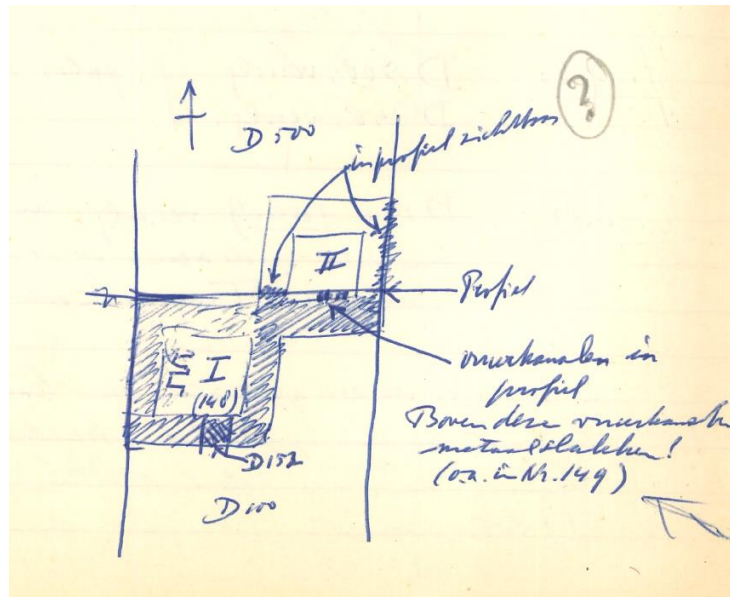 ?
D 500
in profiel zichtbaar
II
Profiel
I
(148)
vuurkanalen in
profiel
Boven deze vuurkanalen
metaalslakken!
(o.a. in Nr. 149)
D152
D100